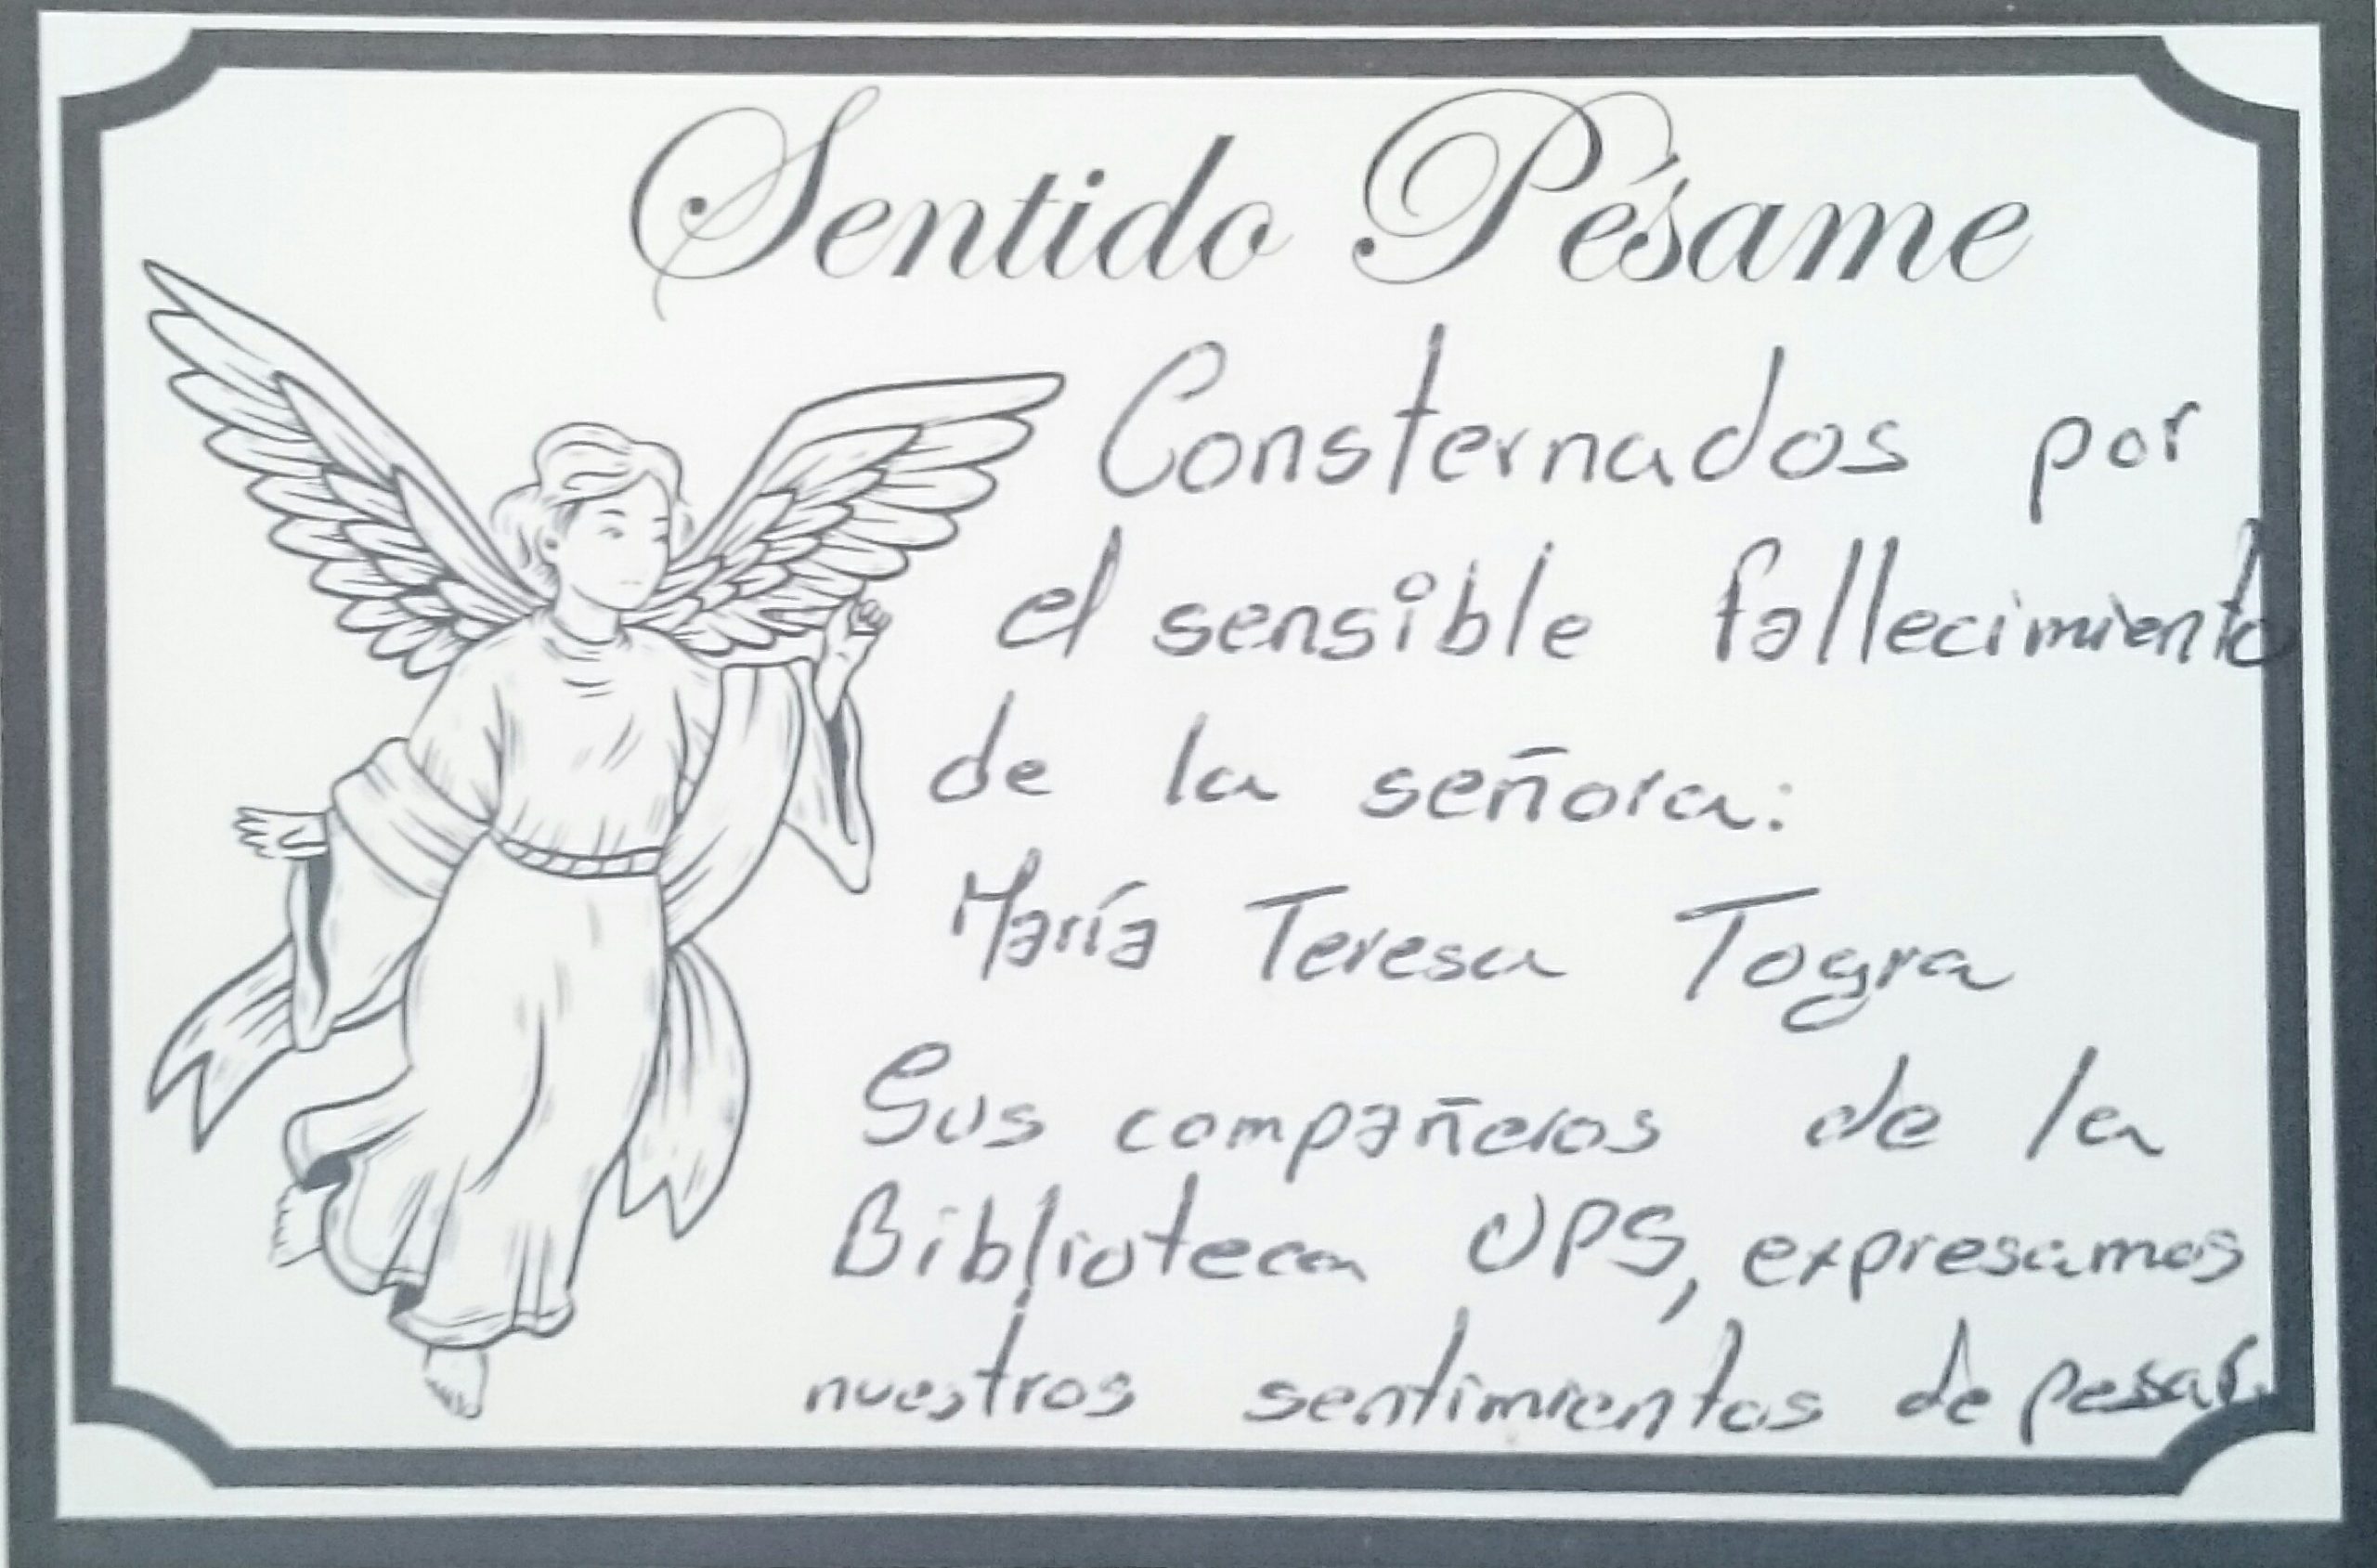 Sentido Pésame
Consternados por
el sensible fallecimiento
de la señora:
María Teresa Togra
Sus compañeros de la
Biblioteca UPS, expresamos
nuestros sentimientos de pesar.